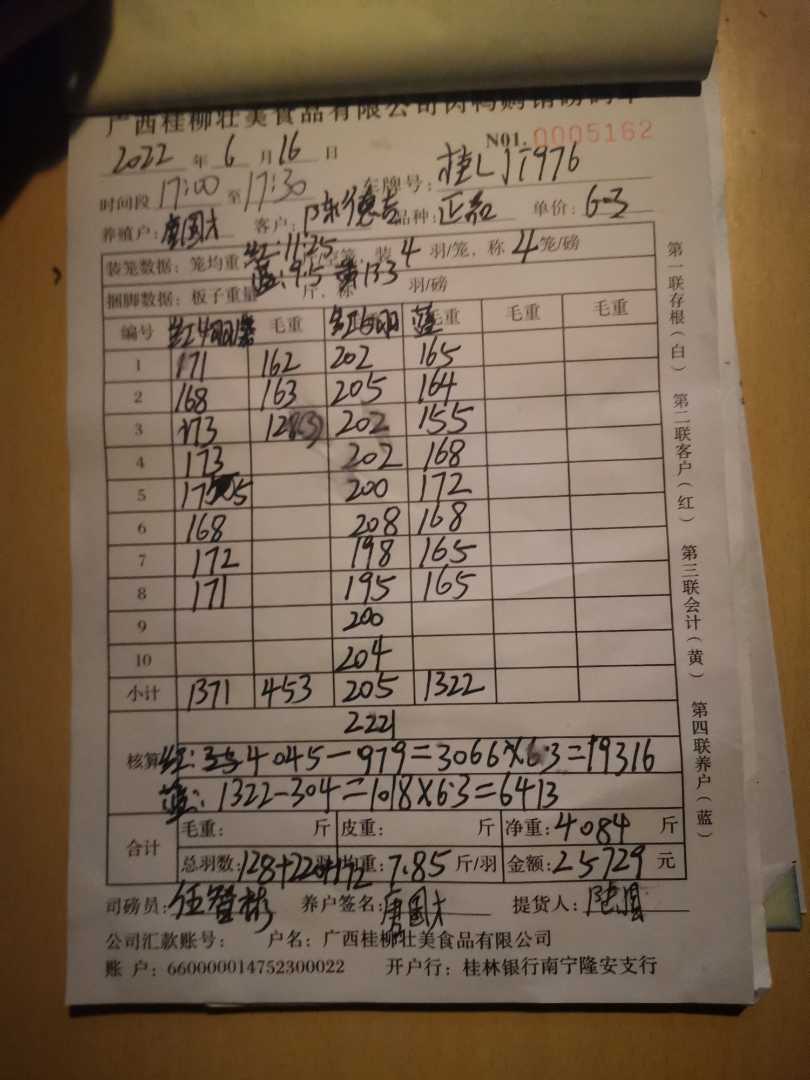 广西桂柳壮美食品有限公司肉鸭购销磅码单
N01. 0005162
2022 年 6 月 16 日
时间段 17:00 至 17:30 车牌号: 桂L
养殖户: 唐国才 客户: 陈德志 品种: 正品 单价: 6.3
装笼数据: 笼均重 红:11.25 装 4 羽/笼, 称 4 笼/磅
蓝:9.5 黄13.3
捆脚数据: 板子重量 斤, 称 羽/磅
编号 红4羽 毛重 红5羽 蓝 毛重 毛重 毛重
1 171 162 202 165
2 168 163 205 164
3 173 128(3) 202 155
4 173 202 168
5 175 200 172
6 168 208 168
7 172 198 165
8 171 195 165
9 200
10 204
小计 1371 453 205 1322
2221
核算 红: 4045-979=3066×6.3=19316
蓝: 1322-304=1018×6.3=6413
合计 毛重: 斤 皮重: 斤 净重: 4084 斤
总羽数: 128+220+172 均重: 7.85 斤/羽 金额: 25729 元
司磅员: 伍智彬 养户签名: 唐国才 提货人:
公司汇款账号: 户名: 广西桂柳壮美食品有限公司
账 户: 660000014752300022 开户行: 桂林银行南宁隆安支行
第一联存根(白) 第二联客户(红) 第三联会计(黄) 第四联养户(蓝)